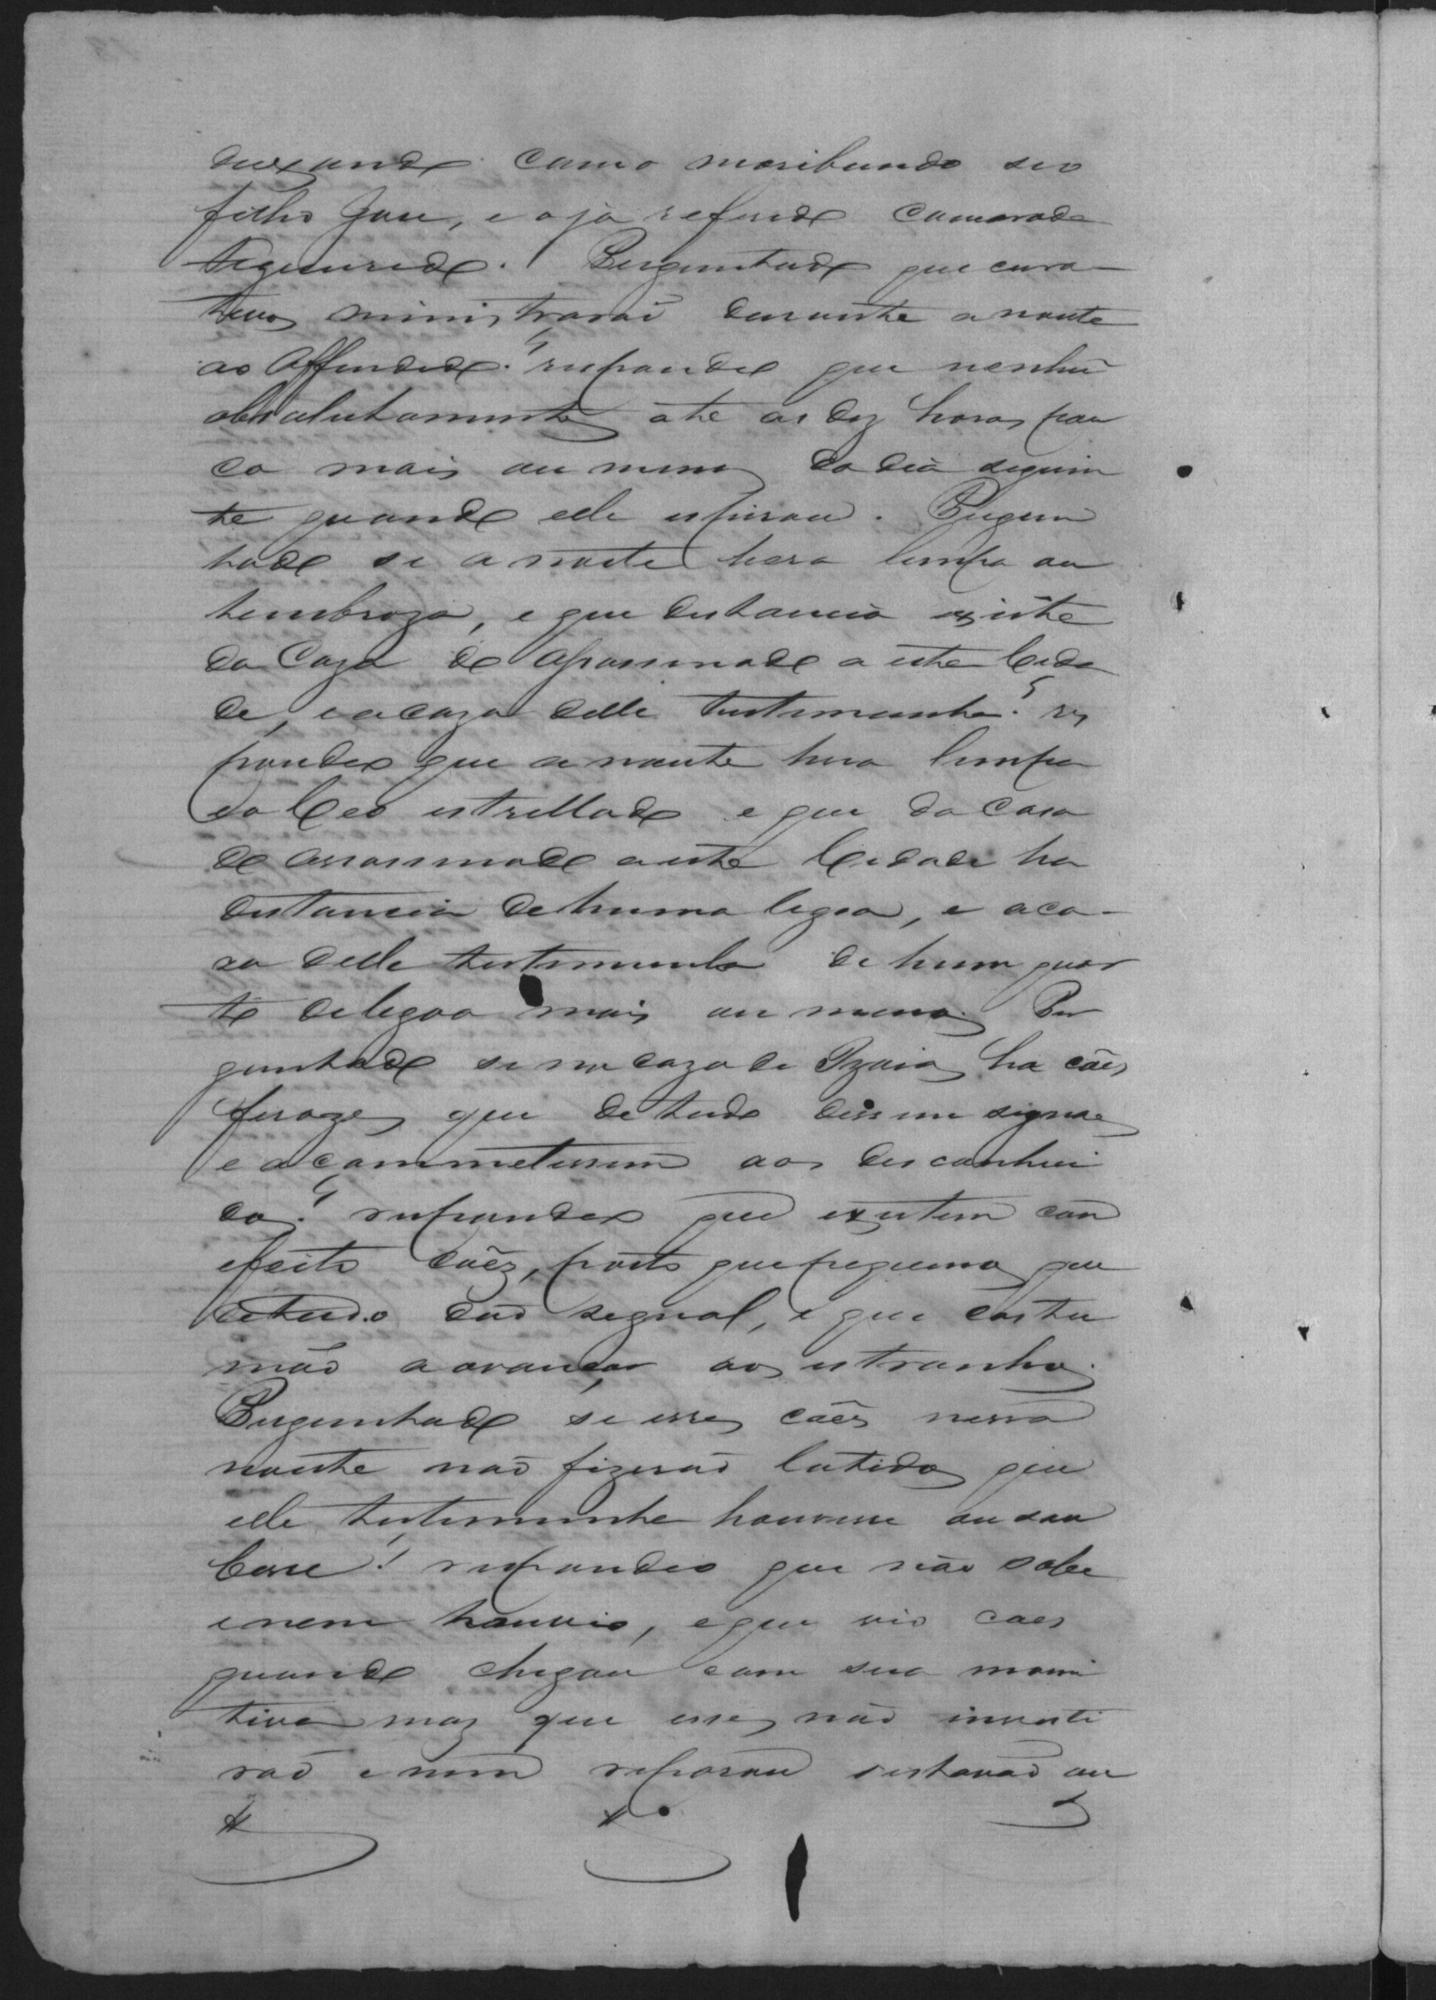 deixando como moribundo seo
filho José, e o ja referido camarada
Perguntado que cura-
tivos ministrarão durante a noute
ao Offendido? respondeo que nenhũ
absolutamente, ate as dez horas pou
co mais ou menos do dia seguin
te quando elle espirou. Pergun
tado se a noute hera limpa ou
tenebroza, e que distancia existe
da Caza do Apassinado a esta Cida
de, e a caza delle testemunha? res
pondeo que a noute hera limpa
e o Ceo estrellado e que da casa
do assassinado a esta Cidade ha
distancia de huma legoa, e a ca-
sa delle testemunha de hum quar
to de legoa mais ou menos. Per
guntado se na caza de Izaias ha cães
ferozes que de tudo dessem signaes
e acommetessem aos desconheci
dos? respondeo que existem com
efeito cães, posto que pequenos que
de tudo dão segnal, e que costu
mão a avançar aos estranhos.
Perguntado se esses cães nessa
noute não fizerão latidos que
elle testemunha houvisse ou sou
besse? respondeo que não sabe
e nem houvio, e que vio caes
quando chegou com sua comi
tiva mas que esses não investi
rão e nem reparou se estavão ou